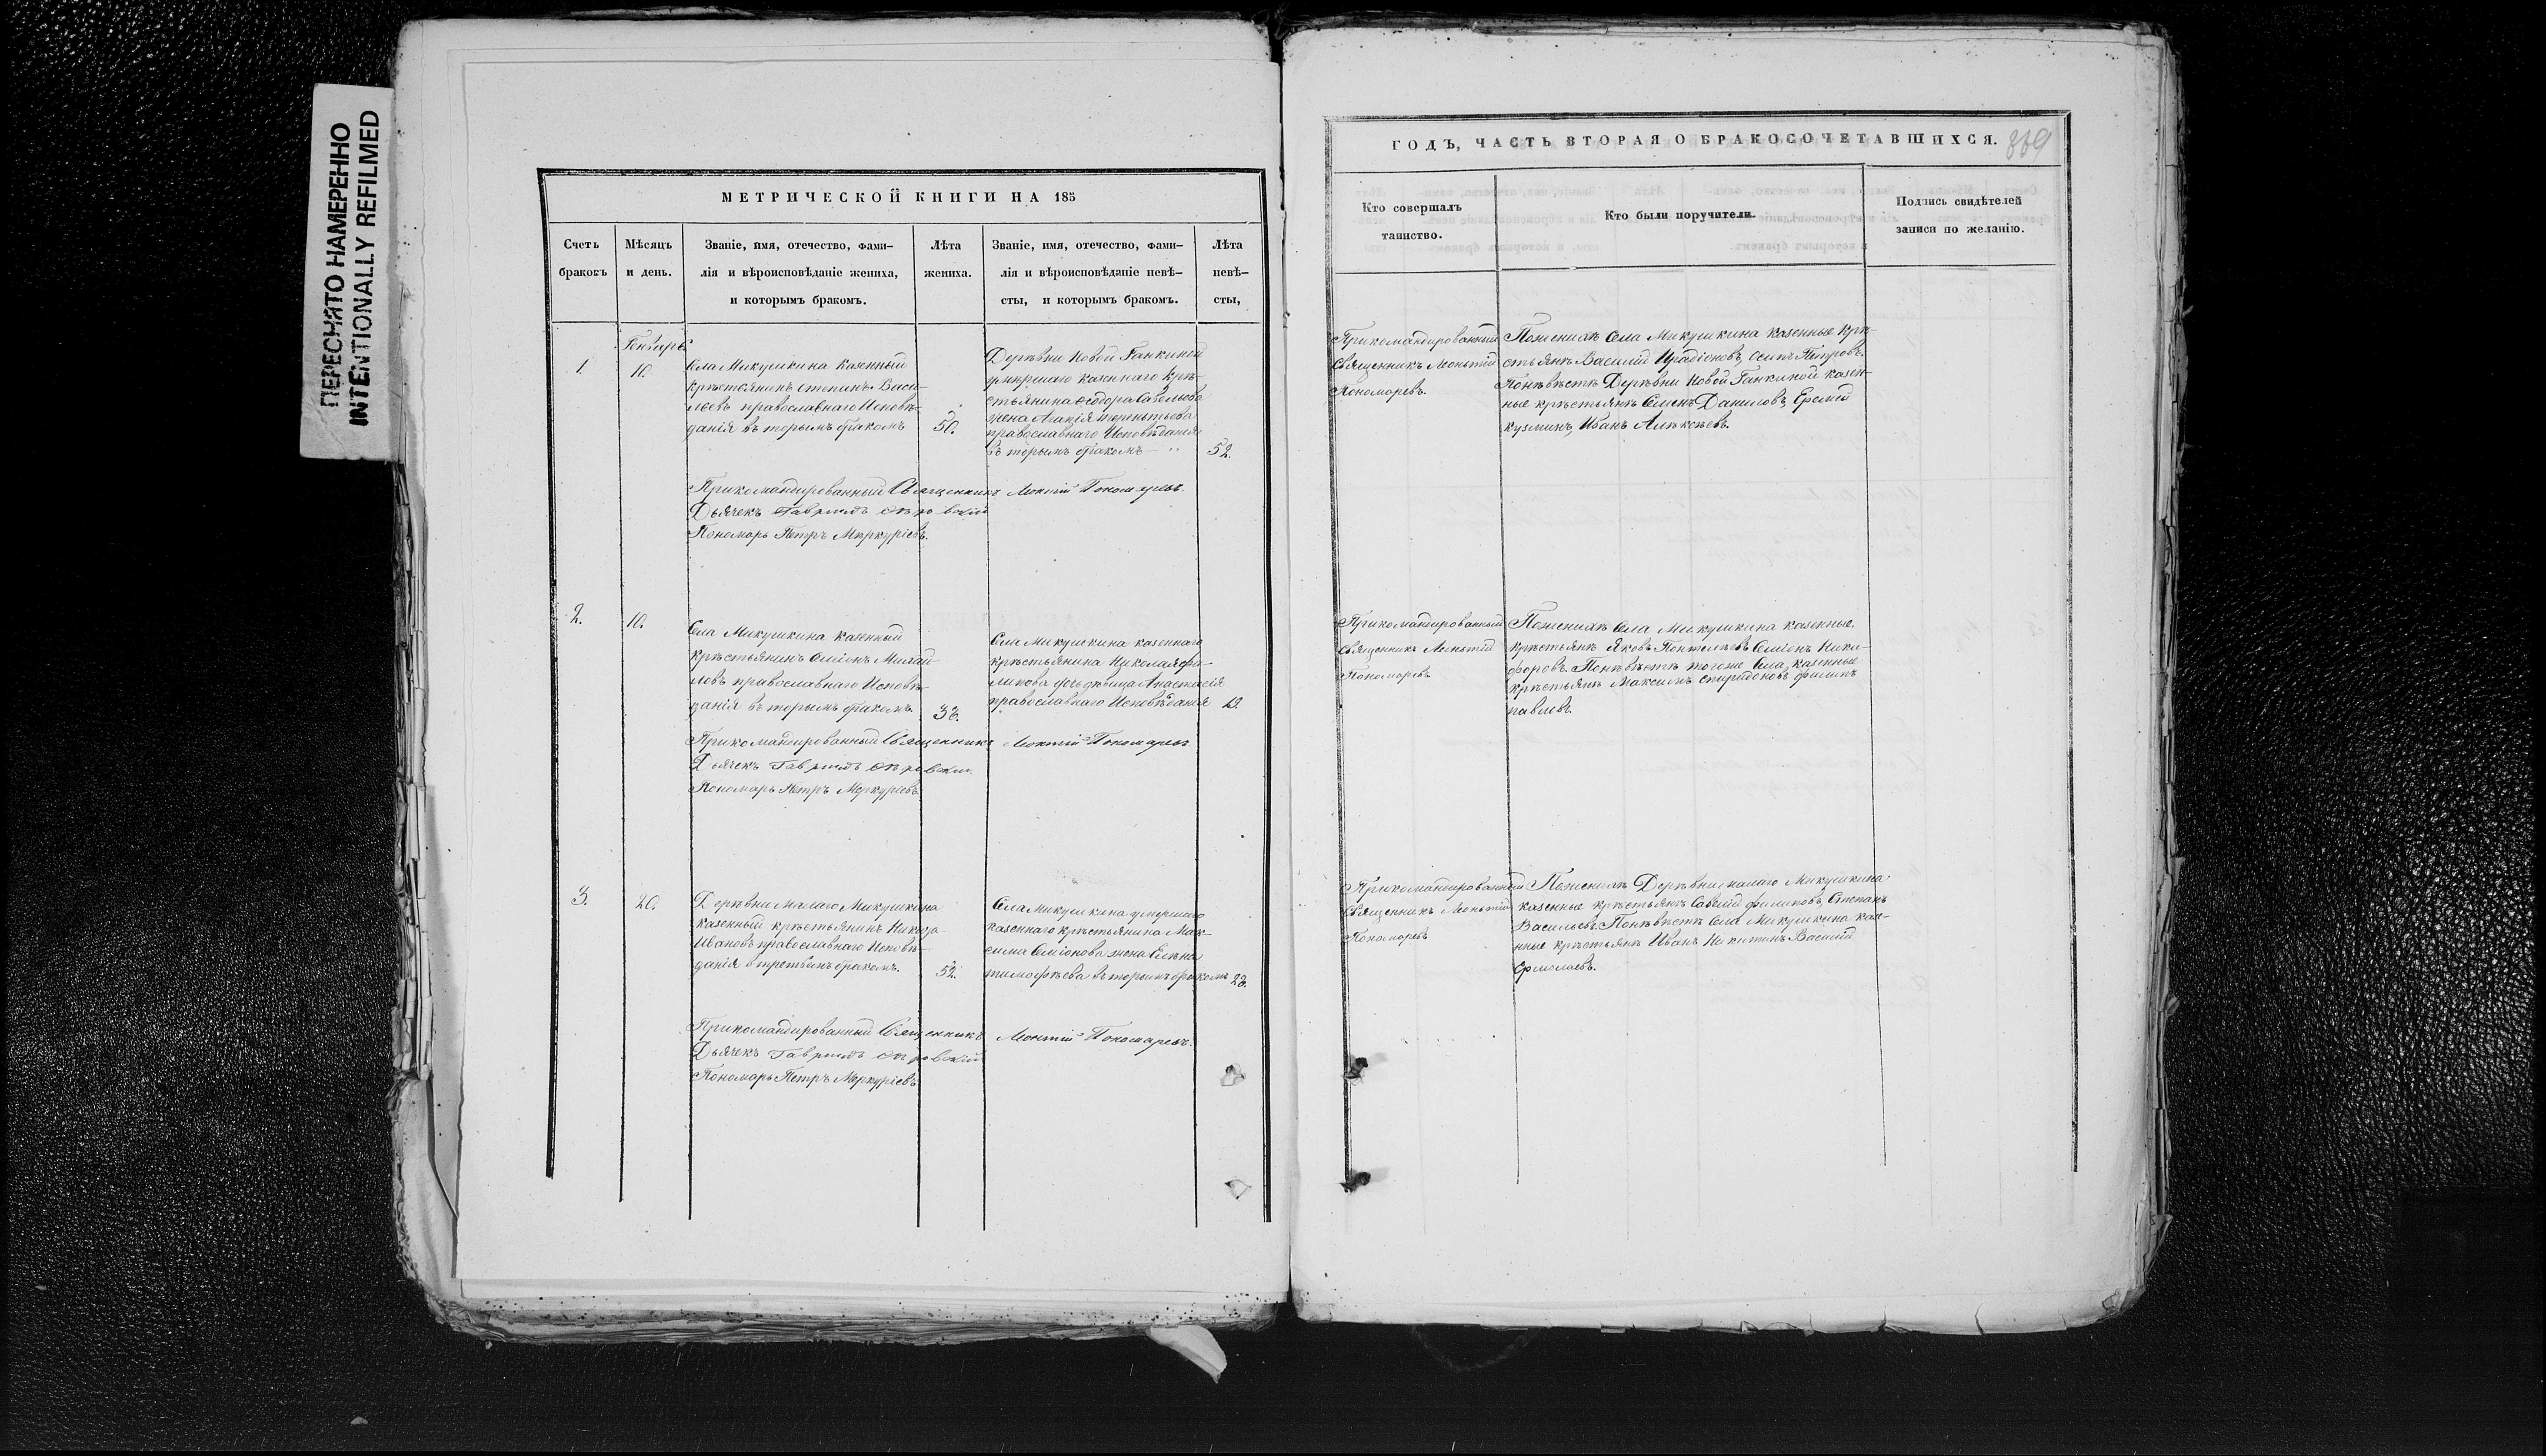 ПЕРЕСНЯТО НАМЕРЕННО
INTENTIONALLY REFILMED
МЕТРИЧЕСКОЙ КНИГИ НА 185
Счетъ
браковъ
Мѣсяцъ
и день.
Званіе, имя, отечество, фами-
лія и вѣроисповѣданіе жениха,
и которымъ бракомъ.
Лѣта
жениха.
Званіе, имя, отечество, фами-
лія и вѣроисповѣданіе невѣ-
сты, и которымъ бракомъ.
Лѣта
невѣ-
сты,
Генварь
1.
10.
Села Микушкина казенный
крѣстьянинъ степанъ Васи-
льевъ православнаго Исповѣ-
данія вторымъ бракомъ
50.
Деревни Новой Ганкиной
умершаго казеннаго крѣ-
стьянина Феодора Савельева
жена Агафія терентьева
православнаго Исповѣданія
вторымъ бракомъ
52.
Прикомандированный Священникъ Леонтій Пономаревъ
Дьячекъ Гавріилъ
Пономарь Петръ Меркуріевъ.
2.
10.
Села Микушкина казенный
крѣстьянинъ Семіонъ Михай-
ловъ православнаго Исповѣ-
данія вторымъ бракомъ.
38.
Села Микушкина казеннаго
крѣстьянина Николая фи-
липова дочь дѣвица Анастасія
православнаго Исповѣданія
Прикомандированный Священникъ Леонтій Пономаревъ
Дьячекъ Гавріилъ
Пономарь Петръ Меркуріевъ.
3.
20.
Деревни малаго Микушкина
казенный крѣстьянинъ Никифо
Ивановъ православнаго Исповѣ-
данія третьимъ бракомъ.
52.
Села Микушкина умершаго
казеннаго крѣстьянина Мак-
сима Семіонова жена Елена
тимофеева вторымъ бракомъ
28.
Прикомандированный Священникъ Леонтій Пономаревъ.
Дьячекъ Гавріилъ
Пономарь Петръ Меркуріевъ
ГОДЪ, ЧАСТЬ ВТОРАЯ О БРАКОСОЧЕТАВШИХСЯ.
Кто совершалъ
таинство.
Кто были поручители.
Подпись свидѣтелей
записи по желанію.
Прикомандированный
Священникъ Леонтій
Пономаревъ.
Поженихѣ Села Микушкина казенные крѣ-
стьянѣ Василій Иродіоновъ, Осипъ Петровъ.
Поневѣстѣ Деревни Новой Ганкиной казен-
ные крѣстьянѣ Семенъ Даниловъ, Еремей
кузминъ, Иванъ Алексеевъ.
Прикомандированный
Священникъ Леонтій
Пономаревъ
Поженихѣ Села Микушкина казенные
крѣстьянѣ Яковъ Понтелеевъ Семіонъ Ники-
форовъ. Поневѣстѣ тогоже Села, казенные
крѣстьянѣ Максимъ спиридоновъ филипъ
павловъ.
Прикомандированный
Священникъ Леонтій
Пономаревъ
Поженихѣ Деревни малаго Микушкина
казенные крѣстьянѣ Савелій филиповъ, Степанъ
Васильевъ. Поневѣстѣ Села Микушкина казе-
нные крѣстьянѣ Иванъ Никитинъ Василій
Ермолаевъ.